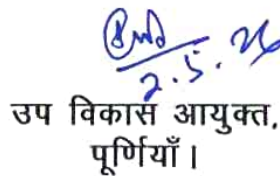 2.5.26
उप विकास आयुक्त,
पूर्णियाँ।